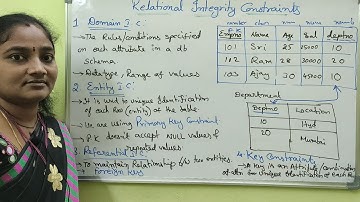 Relational Integrity Constraints
1 Domain I C:
→ The Rules/conditions specified
on each attribute in a db
Schema
→ Datatype, Range of values
2. Entity I C:
→ It is used to unique Identification
of each Row (entity) of the table
→ We are using Primary Key Constraint.
P.K does not accept Null values &
repeated values
3. Referential I C
→ To maintain Relationship b/w two entities.
→ Foreign Key
number char num num
P K
Empno Name Age Sal deptno
101 Sri 25 25000 10
102 Ram 28 30000 20
103 Ajay 30 45000 10
Department
Deptno Location
10 Hyd
20 Mumbai
4. Key Constraints
→ A key is an Attribute/combination
of attri for unique Identification of each